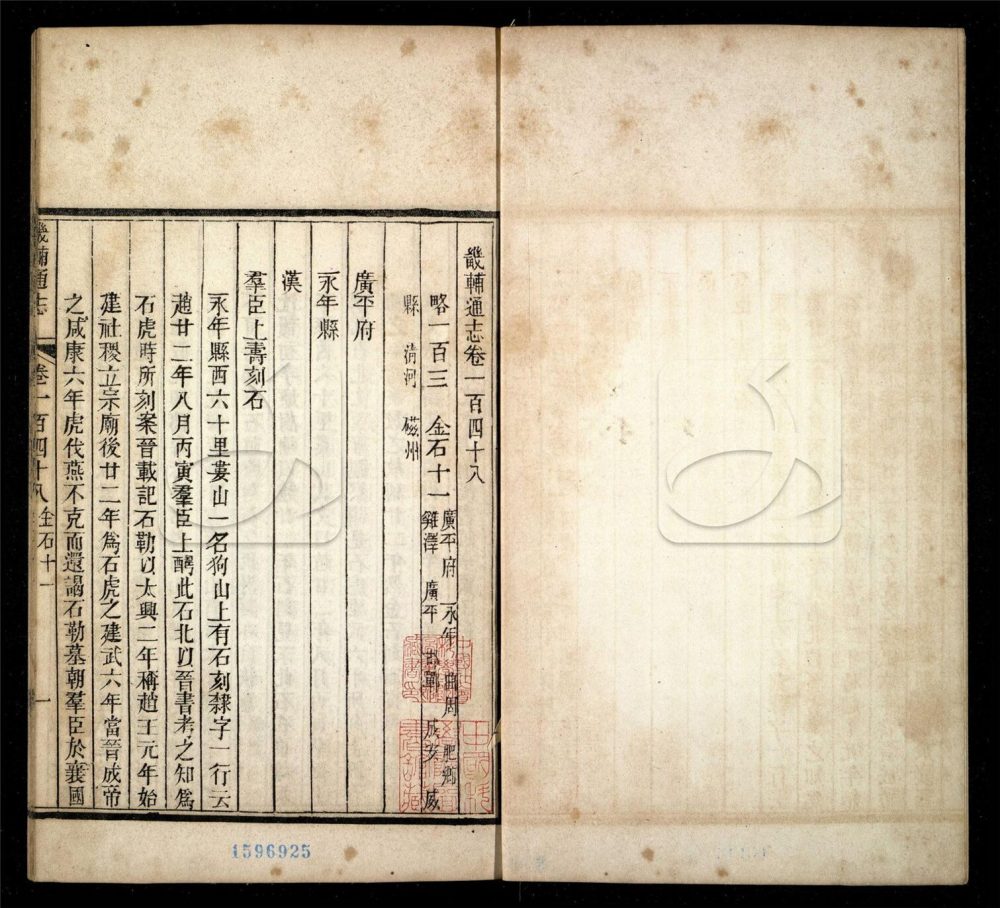 畿輔通志卷一百四十八
略一百三　金石十一　廣平府　永年　曲周　肥鄉　雞澤　廣平　邯鄲　成安　威
縣　清河　磁州
廣平府
永年縣
漢
羣臣上壽刻石
永年縣西六十里婁山一名狗山上有石刻隸字一行云
趙廿二年八月丙寅羣臣上醻此石北以晉書考之知爲
石虎時所刻案晉載記石勒以太興二年稱趙王元年始
建社稷立宗廟後廿二年爲石虎之建武六年當晉成帝
之咸康六年虎伐燕不克而還謁石勒墓朝羣臣於襄國
畿輔通志　卷一百四十八　金石十一　一
1596925